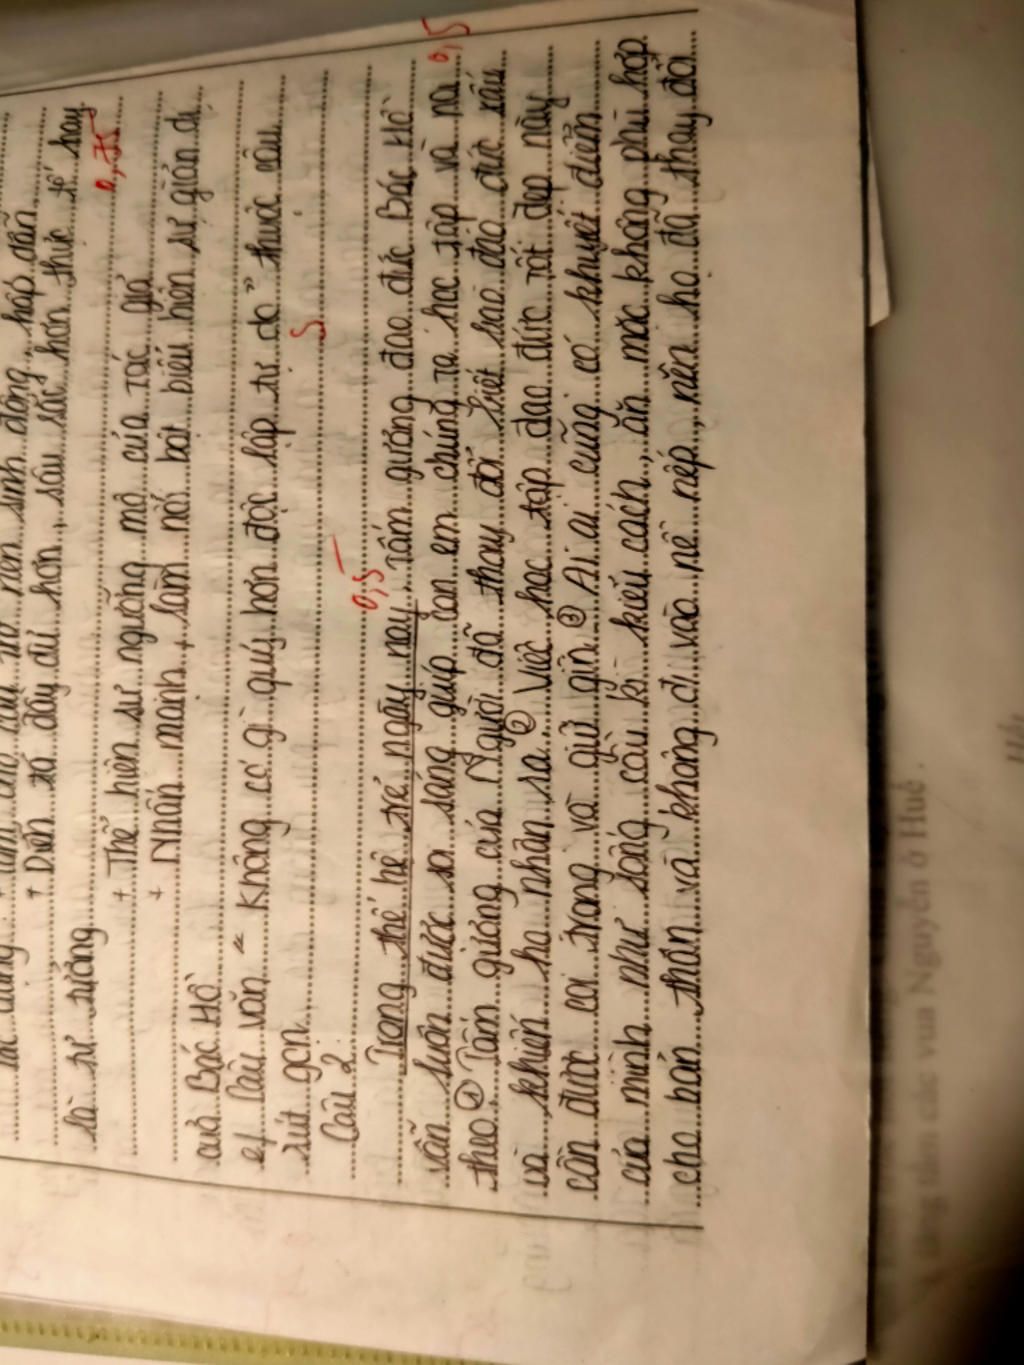 Tác dụng: + làm cho câu trở nên sinh động, hấp dẫn
+ Diễn tả đầy đủ hơn, sâu sắc hơn thực tế hay
là tư tưởng
0,75
+ Thể hiện sự ngưỡng mộ của tác giả
+ Nhấn mạnh, làm nổi bật biểu hiện sự giản dị
của Bác Hồ
e, Câu văn "Không có gì quý hơn độc lập tự do" thuộc câu
rút gọn
Câu 2
0,5
Trong thế hệ trẻ ngày nay, tấm gương đạo đức Bác Hồ
vẫn luôn được soi sáng giúp con em chúng ta học tập và noi
0,5
theo. ① Tấm gương của Người đã thay đổi biết bao đạo đức xấu
và khiến họ nhận ra. ② Việc học tập đạo đức tốt đẹp này
cần được coi trọng và giữ gìn. ③ Ai ai cũng có khuyết điểm
của mình như sống cầu kì kiểu cách, ăn mặc không phù hợp
cho bản thân và không đi vào nề nếp, nên họ đã thay đổi
Lăng tẩm các vua Nguyễn ở Huế.